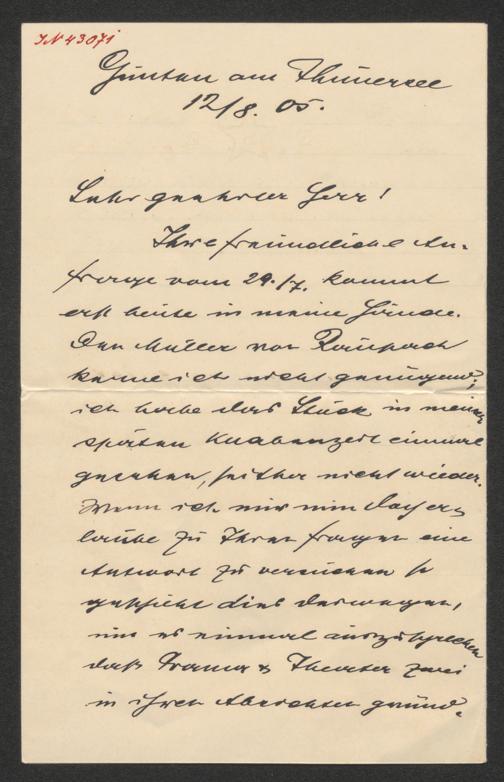 IN 43071
Gunten am Thunersee
12/8. 05.
Sehr geehrter Herr!
Ihre freundliche An-
frage vom 29./7. kommt
erst heute in meine Hände.
Den Müller von Raupach
kenne ich nicht genügend,
ich habe das Stück in meiner
späten Knabenzeit einmal
gesehen, seither nicht wieder.
Wenn ich mir nun doch er-
laube zu Ihren Fragen eine
Antwort zu versuchen so
geschieht dies deswegen,
um es einmal auszusprechen
daß Drama & Theater zwei
in ihren Absichten grund-